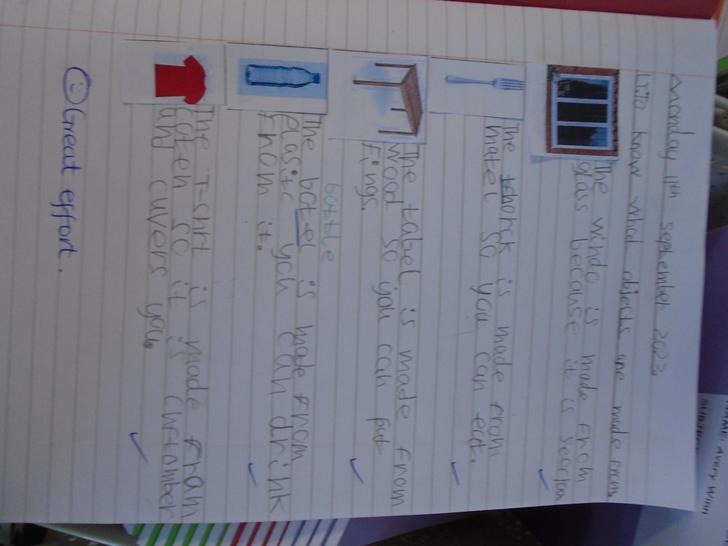 Monday 11th september 2023
L.I.To know what objects are made from
The windo is made from
glass because it is
The thorck is made from
matel so you can eat.
The tabel is made from
wood so you can put
fings.
bottle
The botel is made from
plasitc you can drink
from it.
The T-shrt is made fram
coten so it is
and cuvers you.
Great effort.